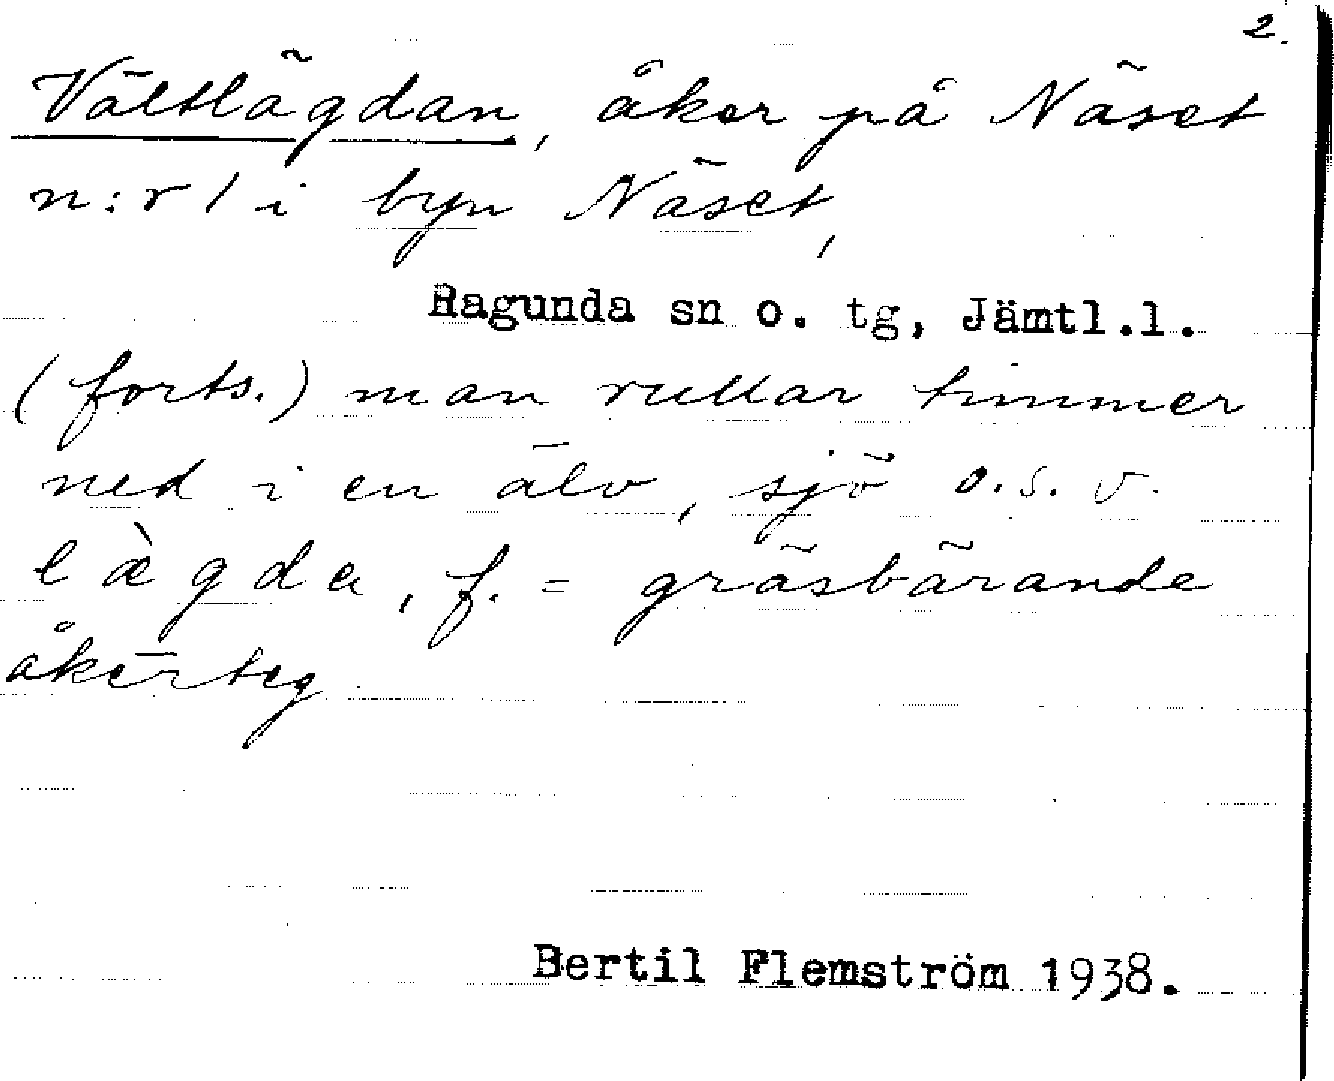 2.
Vältlägdan, åker på Näset
n:r 1 i byn Näset,
Ragunda sn o. tg, Jämtl.l.
(forts.) man rullar timmer
ned i en älv, sjö o.s.v.
lægda, f. = gräsbärande
åkerteg
Bertil Flemström 1938.